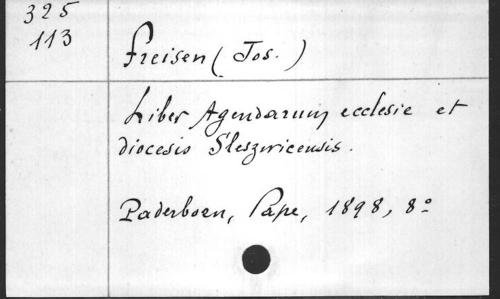 325
113
Freisen (Jos.)
Liber Agendarum ecclesie et
diocesis Sleszwicensis.
Paderborn, Pape, 1898, 8°